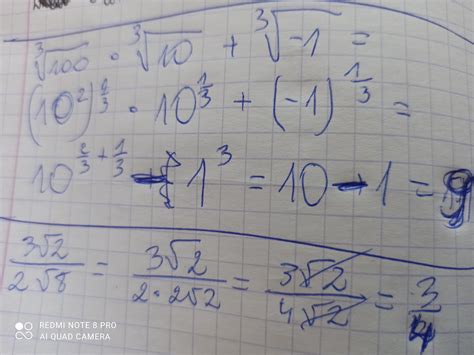 ∛100 · ∛10 + ∛-1 =
(10²)^(1/3) · 10^(1/3) + (-1)^(1/3) =
10^(2/3 + 1/3) - 1³ = 10 - 1 = 9
3√2 / 2√8 = 3√2 / 2·2√2 = 3√2 / 4√2 = 3/4
REDMI NOTE 8 PRO
AI QUAD CAMERA